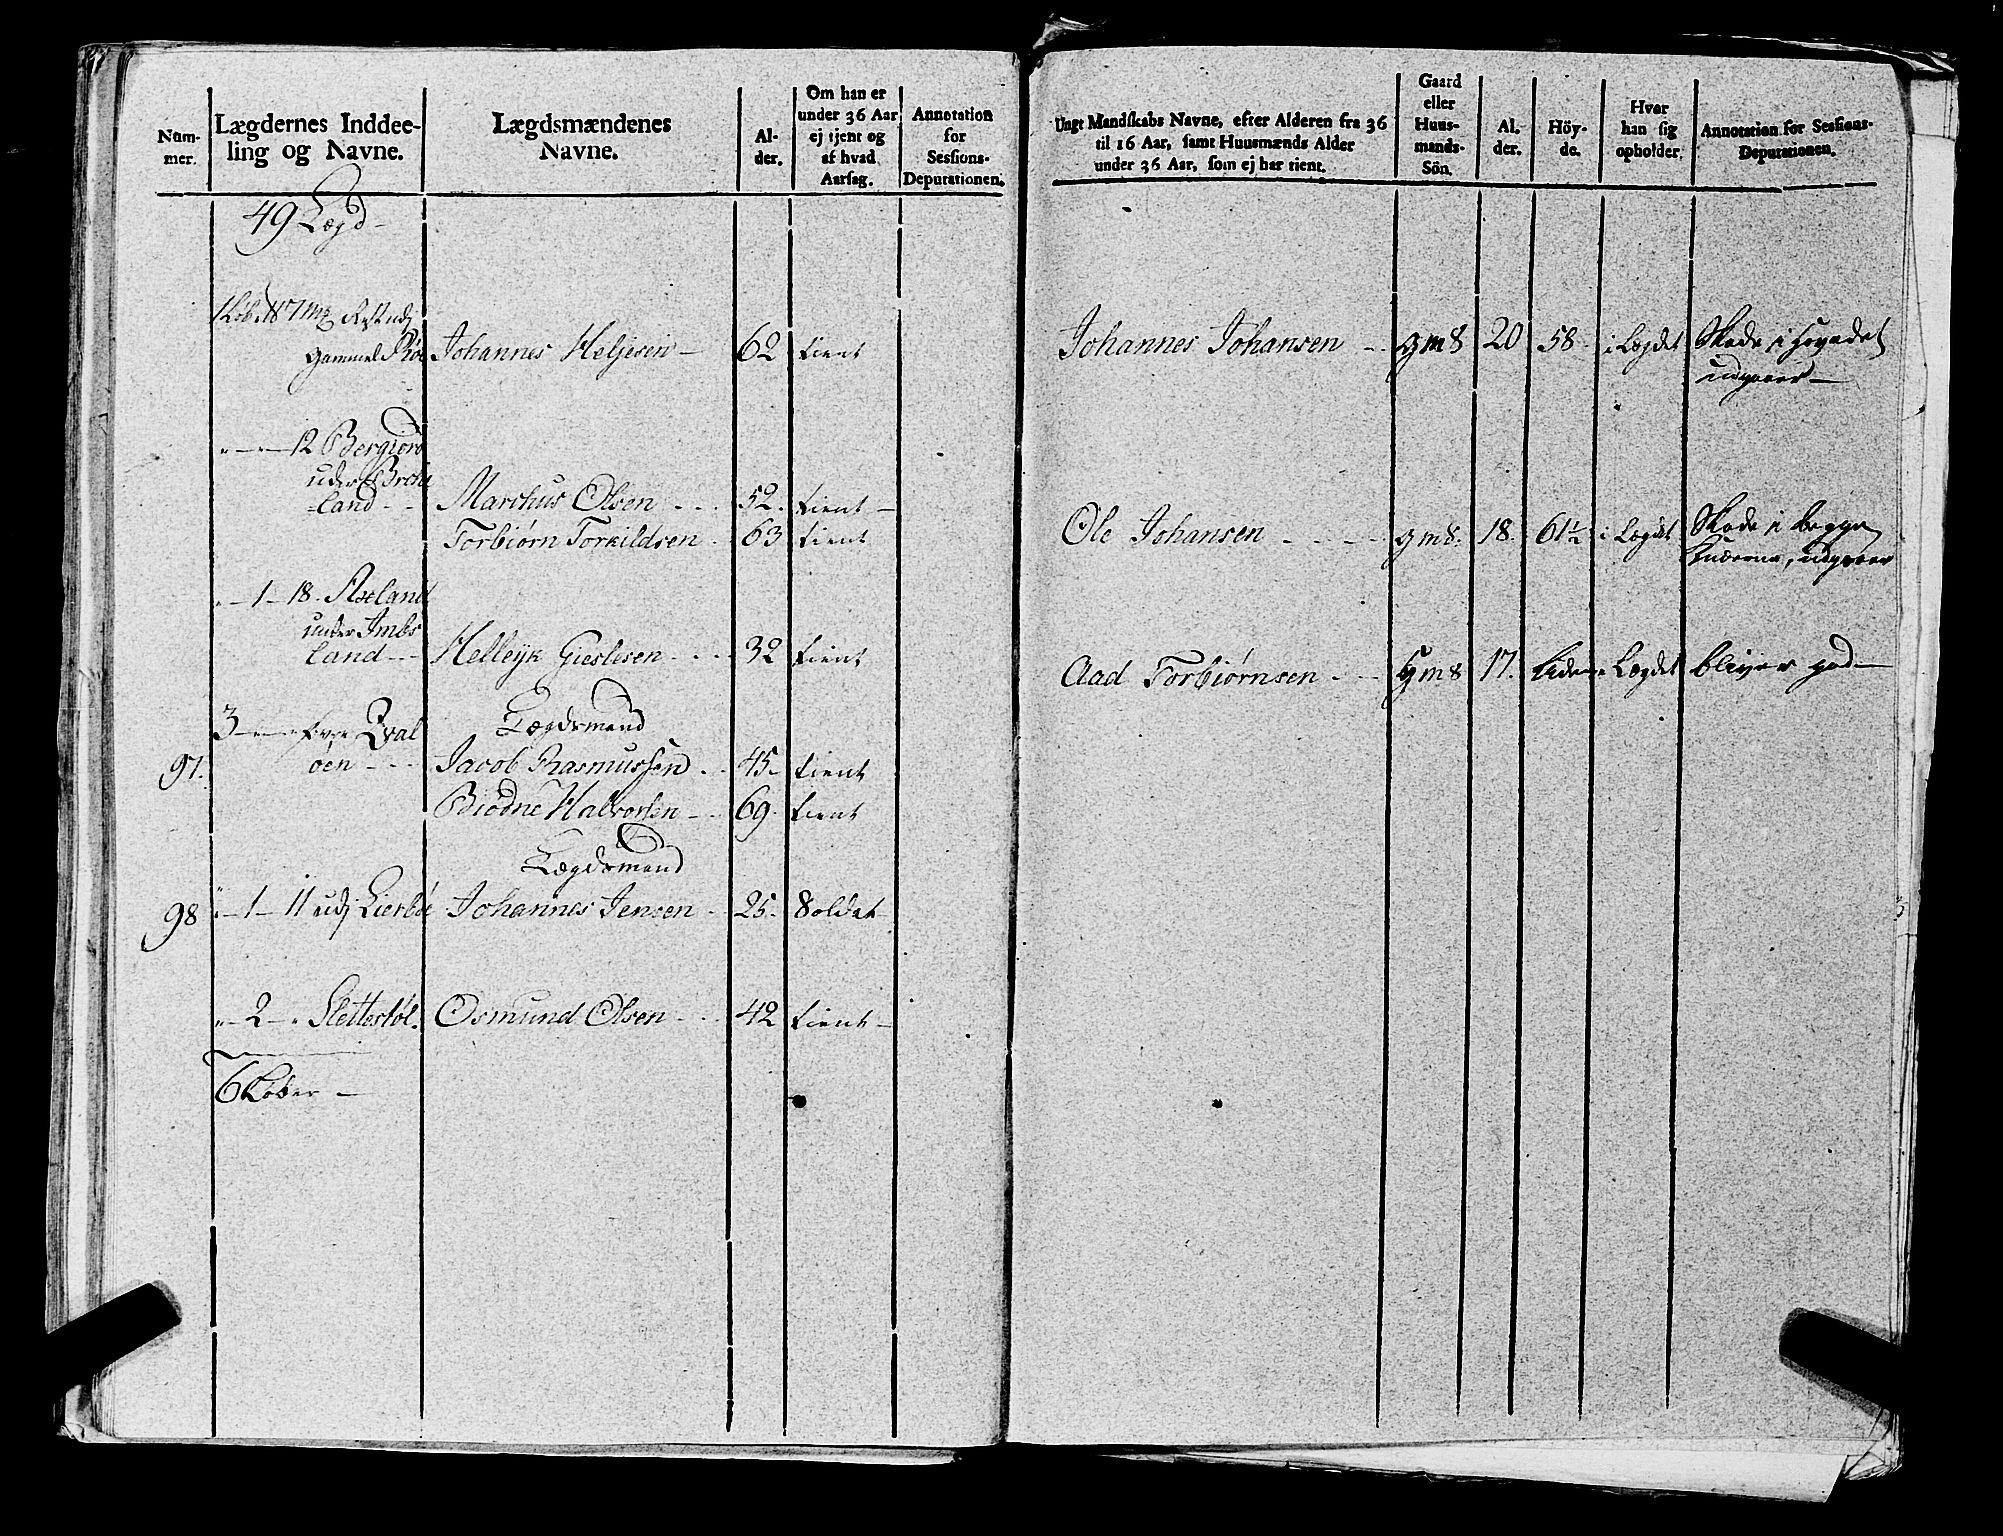 Num-
mer.
Lægdernes Inddee-
ling og Navne.
Lægdsmændenes
Navne.
Al-
der.
Om han er
under 36 Aar
ej tjent og
af hvad
Aarsag.
Annotation
for
Sessions-
Deputationen.
49 Lægd
Gammel
Johannes Heljesen 62 tient
12
land
Marchus Olsen 52. tient
Torbiørn Torkildsen 63 tient
1 18. Aseland
under Imbs
land
Helleyk Gieslesen 32 tient
3 Qval
Lægdsmand
97. øen Jacob Rasmussen 45 tient
Biodne Halvorsen 69 tient
Lægdsmand
98 1 11 udj Lierbøe Johannes Jensen 25. Soldat
2 Slettestøl. Osmund Olsen 42 tient
6 Løber
Ungt Mandskabs Navne, efter Alderen fra 36
til 16 Aar, samt Huusmænds Alder
under 36 Aar, som ej har tient.
Gaard
eller
Huus-
mands-
Sön.
Al.
der.
Höy-
de.
Hvor
han sig
opholder.
Annotation for Sessions-
Deputationen.
Johannes Johansen gms 20 58 i Lægdet Skade i Hovedet
udgaaer
Ole Johansen gms. 18. 61½ i Lægdet Skade i begge
Knæerne, udgaaer
Aad Torbiørnsen gms 17. Lægdet bliver god